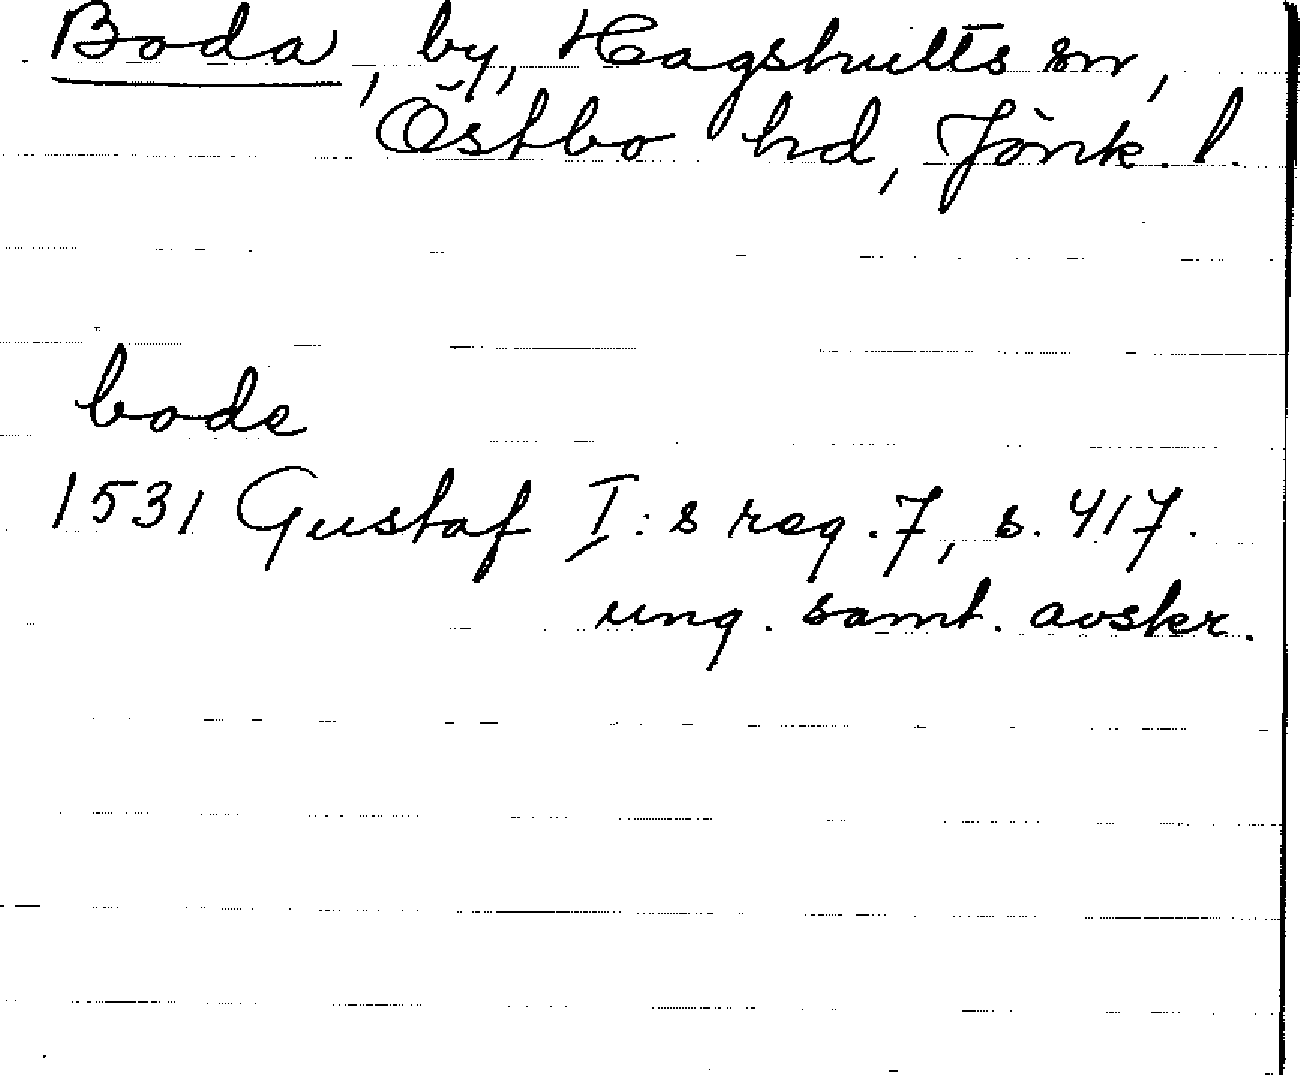 Boda, by, Hagshults sn,
Östbo hd, Jönk. l.
bode
1531 Gustaf I:s reg. 7, s. 417.
ung. samt. avskr.